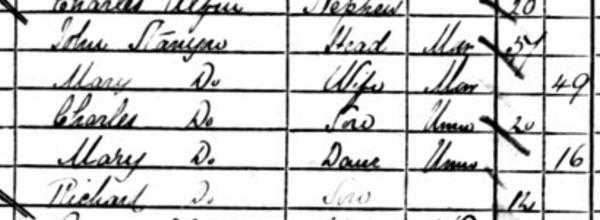 Charles Stephens 20
John Head Mar 57
Mary Do Wife Mar 49
Charles Do Son Unm 20
Mary Do Daur Unm 16
Richard Do Son 12